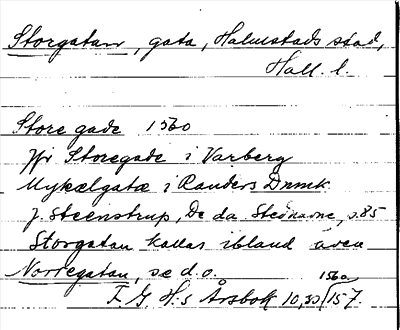 Storgatan, gata, Halmstads stad,
Hall. l.
Store gade 1560
Jfr Storegade i Varberg
Mykelgatæ i Randers Dnmk
J. Steenstrup, De da Stednavne, s. 85
Storgatan kallas ibland även
Norregatan, se d. o.
1560
F. G. H:s Årsbok 10,30/157.